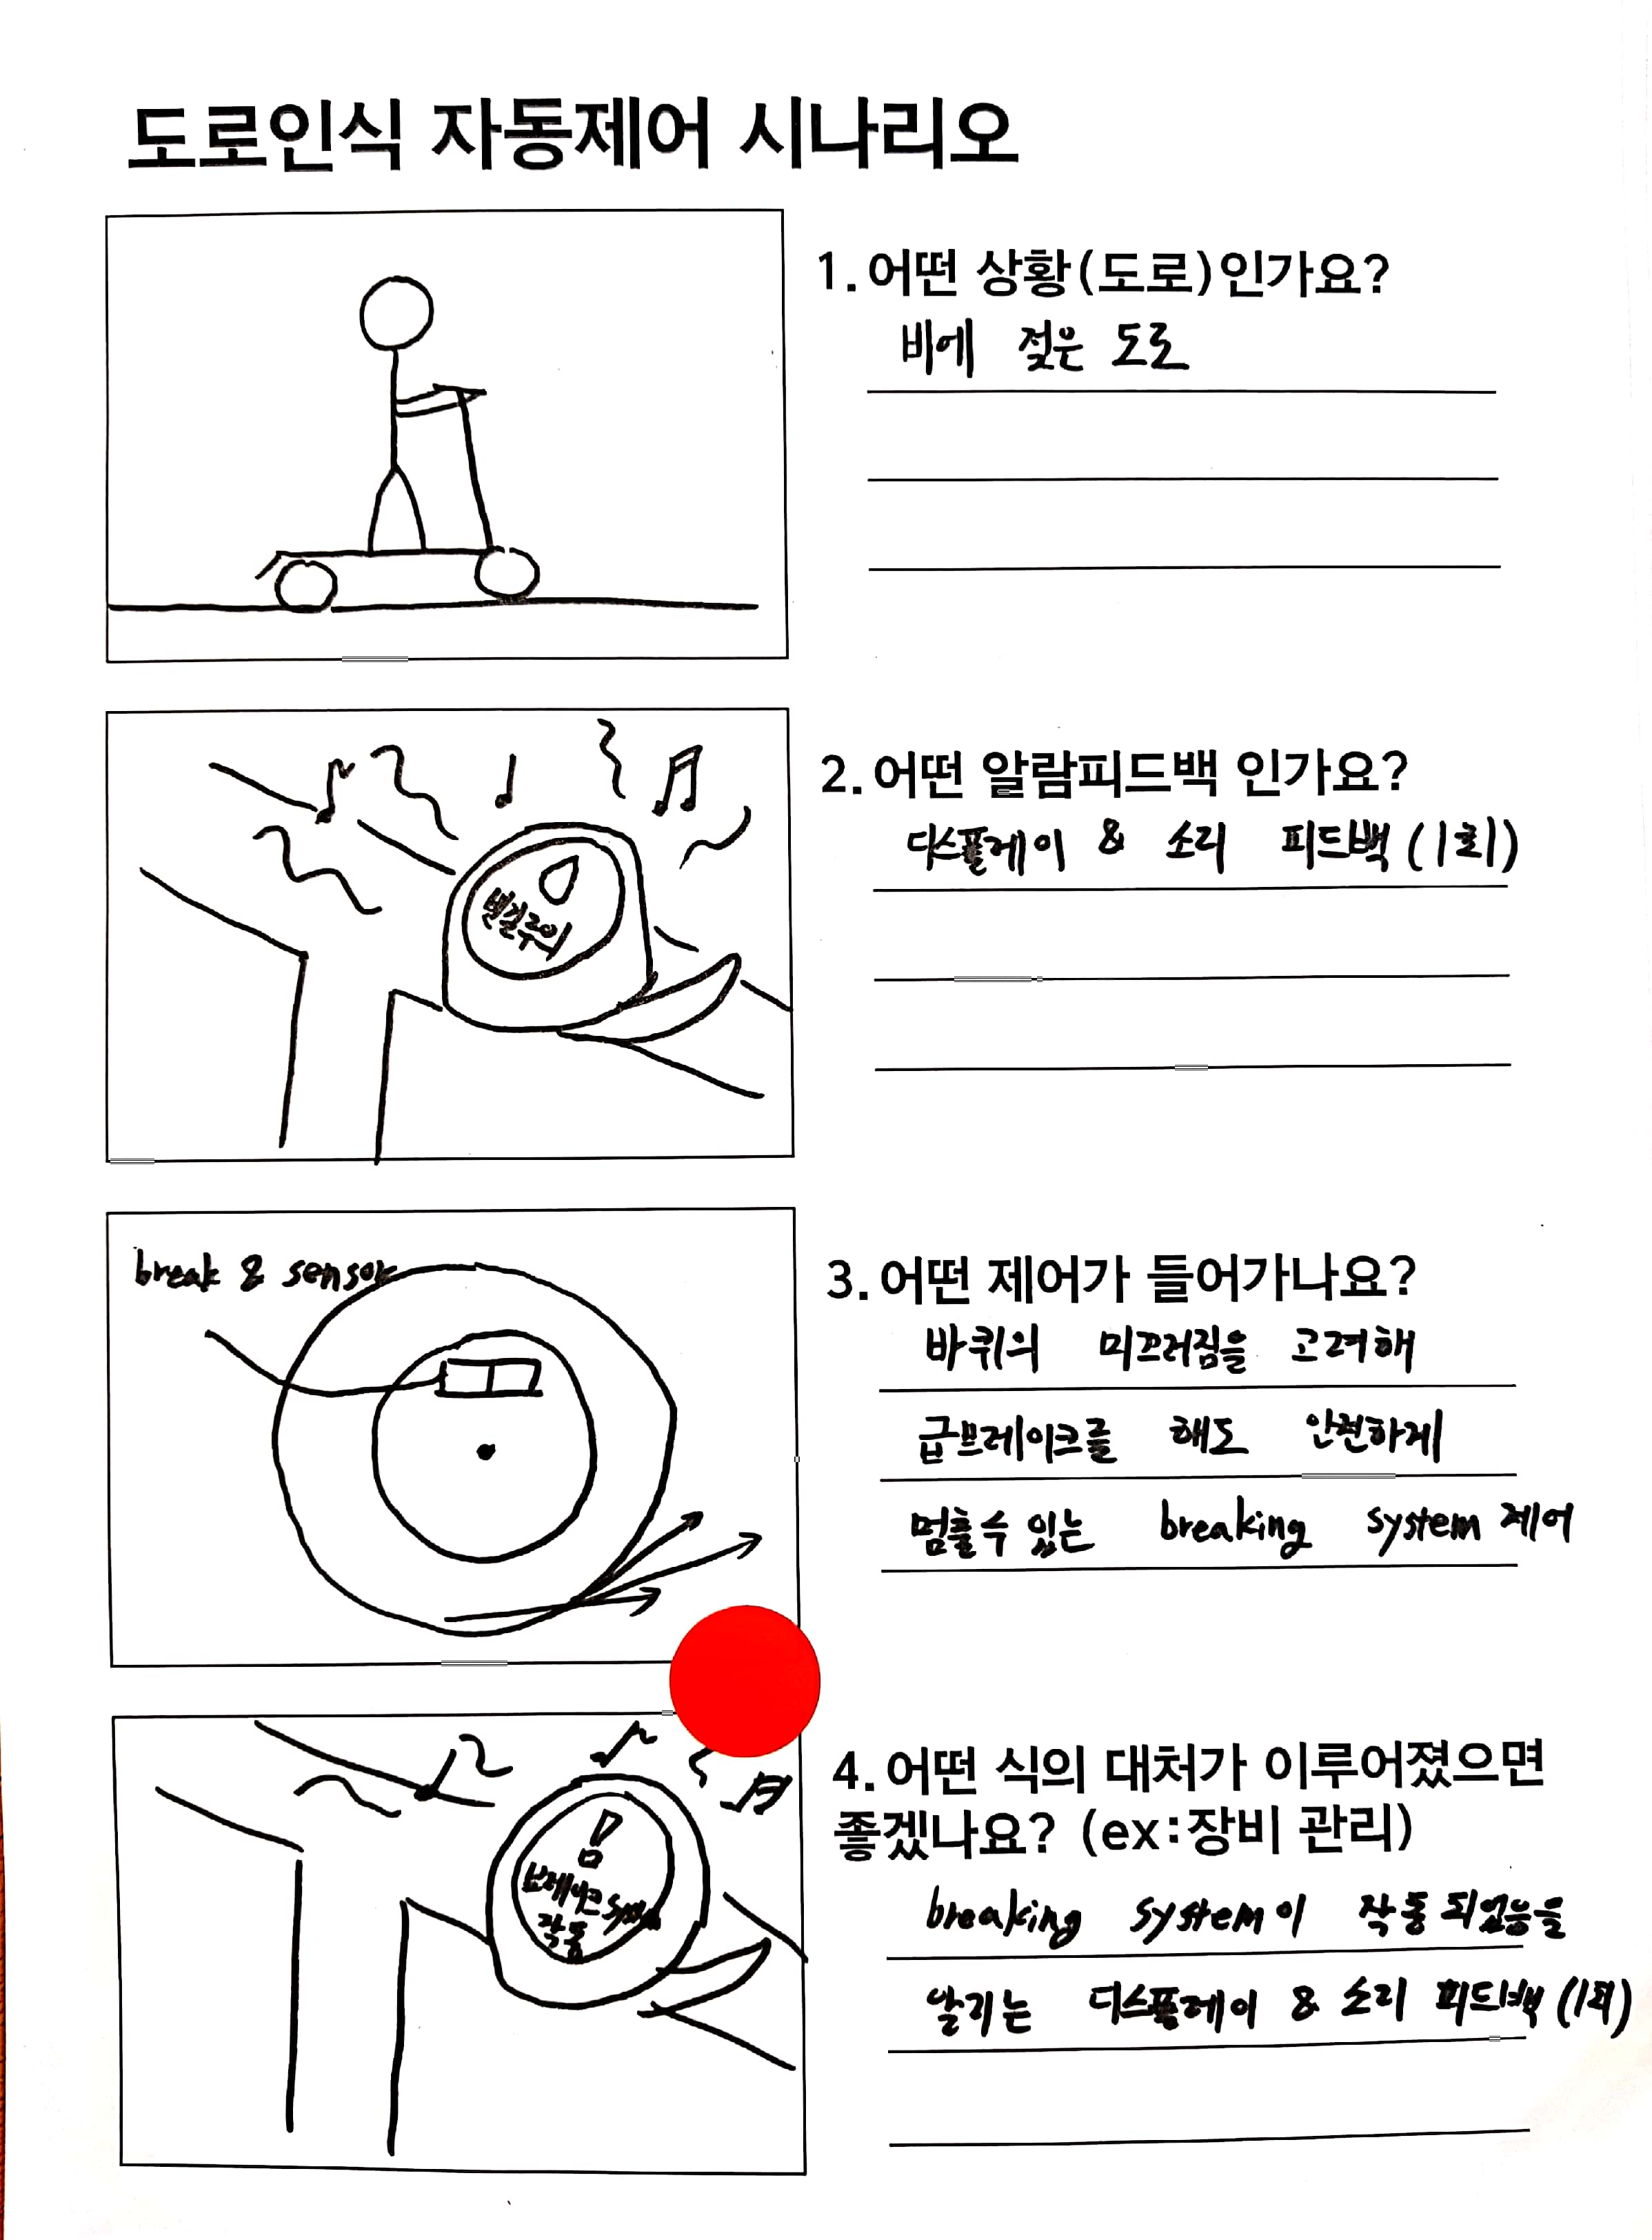 도로인식 자동제어 시나리오
1. 어떤 상황(도로)인가요?
비에 젖은 도로
2. 어떤 알람피드백 인가요?
디스플레이 & 소리 피드백 (1회)
빗길주의
break & sensor
3. 어떤 제어가 들어가나요?
바퀴의 미끄러짐을 고려해
급브레이크를 해도 안전하게
멈출수 있는 breaking system 제어
4. 어떤 식의 대처가 이루어졌으면
좋겠나요? (ex:장비 관리)
!
브레이크 sys
작동
breaking system이 작동 되었음을
알리는 디스플레이 & 소리 피드백 (1회)